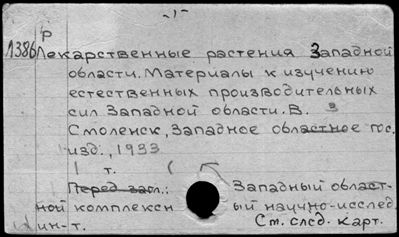 -1-
р
1386 Лекарственные растения Западной
области. Материалы к изучению
естественных производительных
сил Западной области. В. 3
Смоленск, Западное областное гос.
изд., 1933
1 т. (
Перед загл.: Западный област-
ной комплексн ый научно-исслед.
ин-т. См. след. карт.